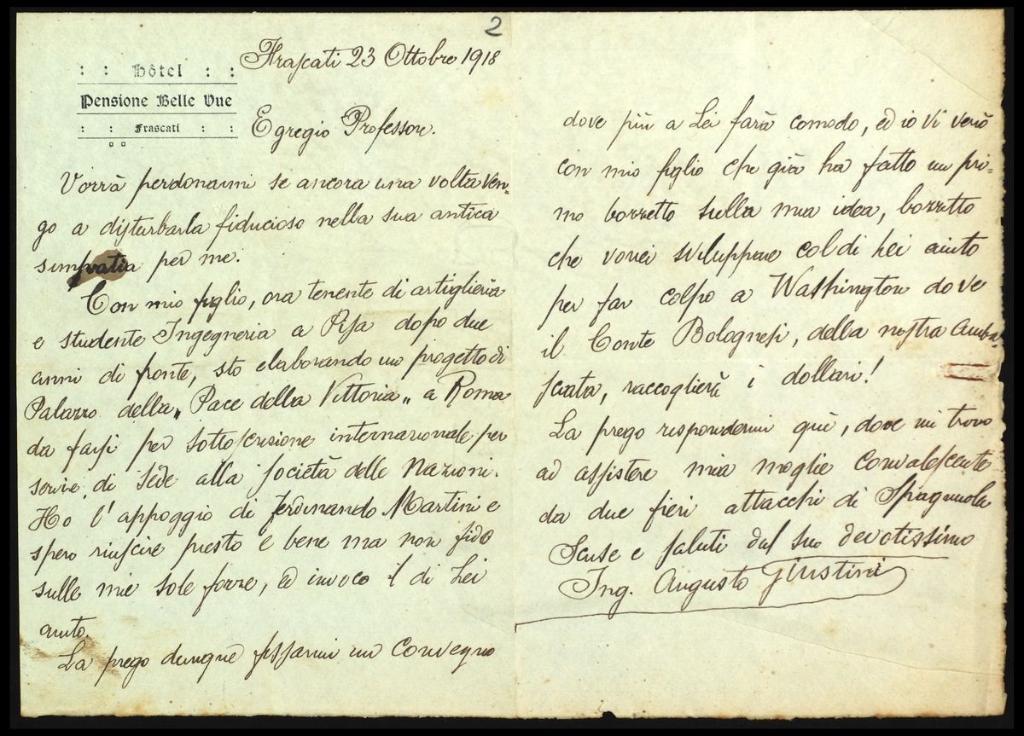 2
: : Hôtel : :
Pensione Belle Vue
: : Frascati : :
Frascati 23 Ottobre 1918
Egregio Professore.
Vorrà perdonarmi se ancora una volta ven-
go a disturbarla fiducioso nella sua antica
simpatia per me.
Con mio figlio, ora tenente di artiglieria
e studente Ingegneria a Pisa dopo due
anni di fronte, sto elaborando un progetto di
Palazzo della „Pace della Vittoria„ a Roma
da farsi per sottoscrisione internazionale per
servire di sede alla Società delle Nazioni.
Ho l'appoggio di Ferdinando Martini e
spero riuscire presto e bene ma non fido
sulle mie sole forze, ed invoco il di Lei
aiuto.
La prego dunque fissarmi un convegno
dove più a Lei farà comodo, ed io vi verrò
con mio figlio che già ha fatto un pri-
mo bozzetto sulla mia idea, bozzetto
che vorrei sviluppare col di Lei aiuto
per far colpo a Washington dove
il Conte Bolognesi, della nostra Amba-
sciata, raccoglierà i dollari!
La prego rispondermi quì, dove mi trovo
ad assistere mia moglie convalescente
da due fieri attacchi di Spagnuola
Scuse e saluti dal suo devotissimo
Ing. Augusto Giustini